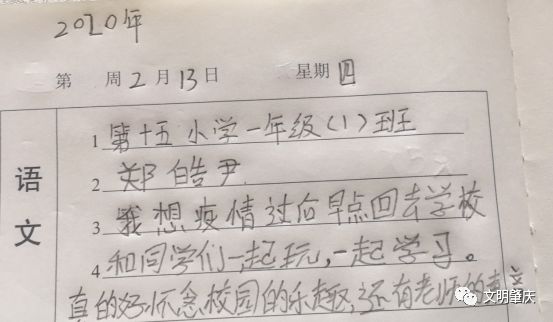 2020年
第 周2月13日 星期四
语文
1 第十五小学一年级(1)班
2 郑皓尹
3 我想疫情过后早点回去学校
4 和同学们一起玩,一起学习。
真的好怀念校园的乐趣,还有老师的
文明肇庆